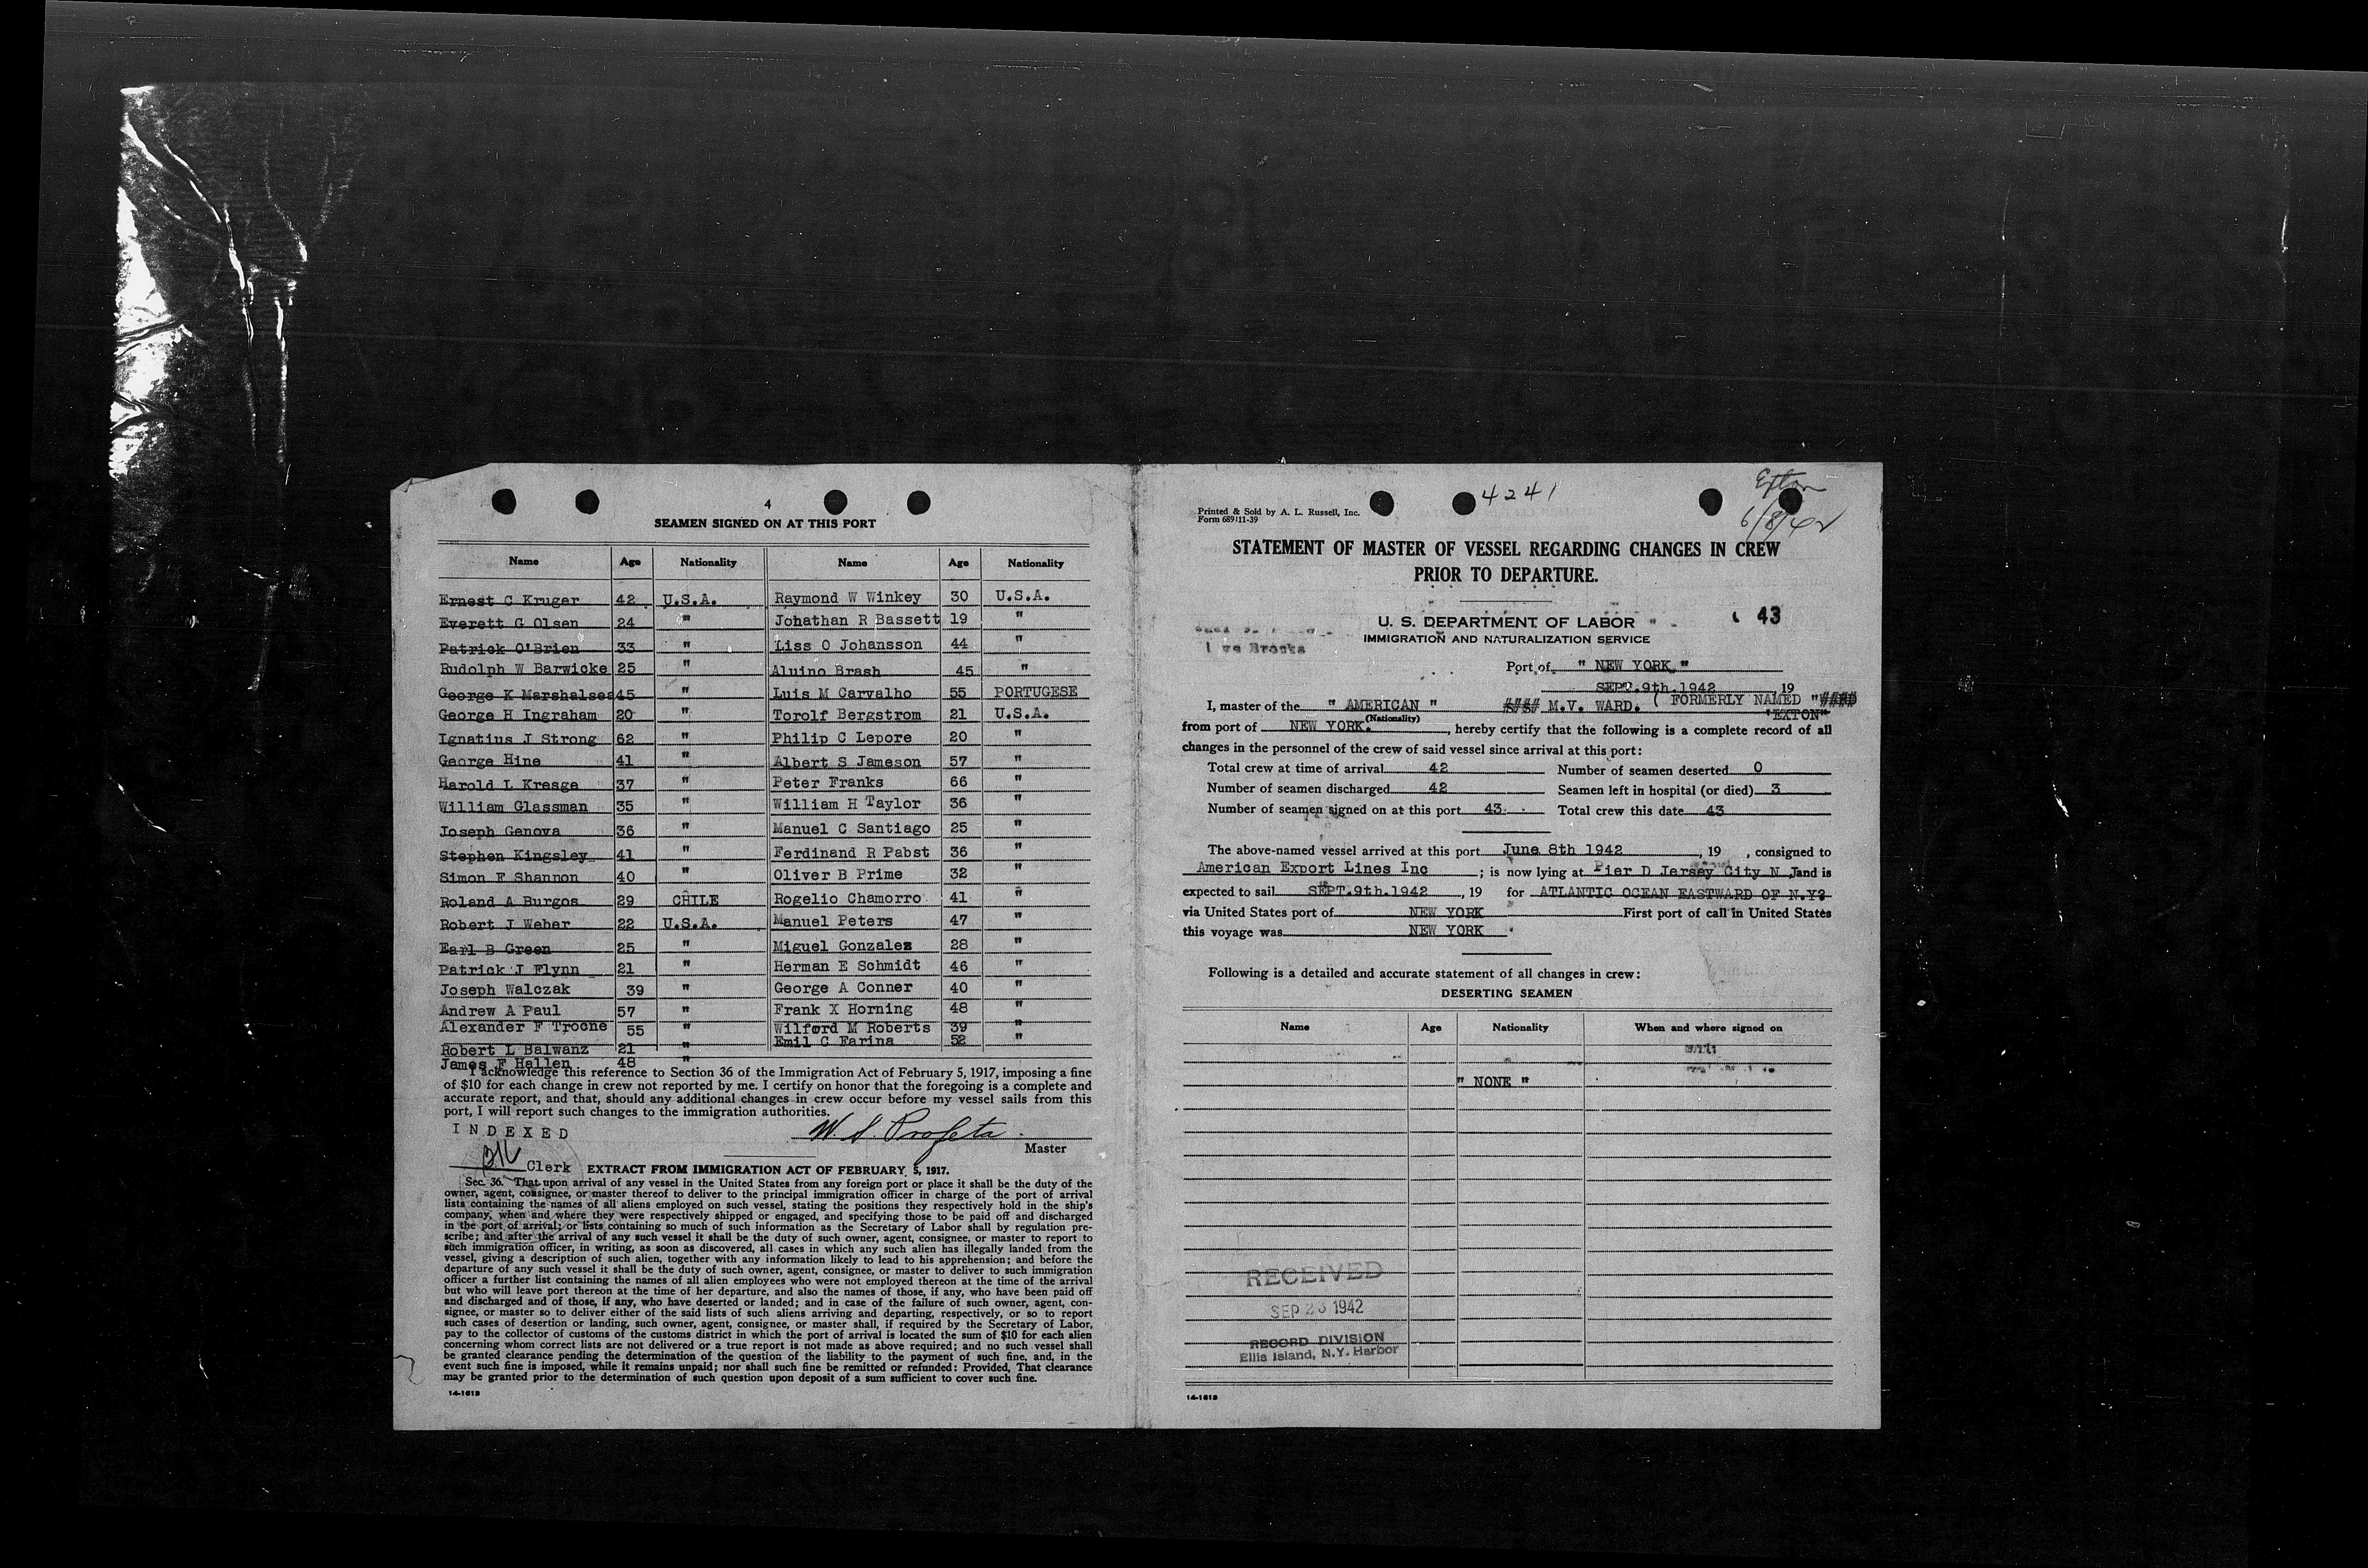 4
SEAMEN SIGNED ON AT THIS PORT
Name Age Nationality Name Age Nationality
Ernest C Kruger 42 U.S.A. Raymond W Winkey 30 U.S.A.
Everett G Olsen 24 " Johathan R Bassett 19 "
Patrick O'Brien 33 " Liss O Johansson 44 "
Rudolph W Barwicke 25 " Aluino Brash 45 "
George K Marshalsea 45 " Luis M Carvalho 55 PORTUGESE
George H Ingraham 20 " Torolf Bergstrom 21 U.S.A.
Ignatius J Strong 62 " Philip C Lepore 20 "
George Hine 41 " Albert S Jameson 57 "
Harold L Kresge 37 " Peter Franks 66 "
William Glassman 35 " William H Taylor 36 "
Joseph Genova 36 " Manuel C Santiago 25 "
Stephen Kingsley 41 " Ferdinand R Pabst 36 "
Simon F Shannon 40 " Oliver B Prime 32 "
Roland A Burgos 29 CHILE Rogelio Chamorro 41 "
Robert J Weber 22 U.S.A. Manuel Peters 47 "
Earl B Green 25 " Miguel Gonzalez 28 "
Patrick J Flynn 21 " Herman E Schmidt 46 "
Joseph Walczak 39 " George A Conner 40 "
Andrew A Paul 57 " Frank X Horning 48 "
Alexander F Trocne 55 " Wilford M Roberts 39 "
Robert L Balwanz 21 " Emil C Farina 52 "
James F Hallen 48 "
I acknowledge this reference to Section 36 of the Immigration Act of February 5, 1917, imposing a fine
of $10 for each change in crew not reported by me. I certify on honor that the foregoing is a complete and
accurate report, and that, should any additional changes in crew occur before my vessel sails from this
port, I will report such changes to the immigration authorities.
INDEXED
W. S. Profeta
Master
Clerk
EXTRACT FROM IMMIGRATION ACT OF FEBRUARY 5, 1917.
Sec. 36. That upon arrival of any vessel in the United States from any foreign port or place it shall be the duty of the
owner, agent, consignee, or master thereof to deliver to the principal immigration officer in charge of the port of arrival
lists containing the names of all aliens employed on such vessel, stating the positions they respectively hold in the ship's
company, when and where they were respectively shipped or engaged, and specifying those to be paid off and discharged
in the port of arrival; or lists containing so much of such information as the Secretary of Labor shall by regulation pre-
scribe; and after the arrival of any such vessel it shall be the duty of such owner, agent, consignee, or master to report to
such immigration officer, in writing, as soon as discovered, all cases in which any such alien has illegally landed from the
vessel, giving a description of such alien, together with any information likely to lead to his apprehension; and before the
departure of any such vessel it shall be the duty of such owner, agent, consignee, or master to deliver to such immigration
officer a further list containing the names of all alien employees who were not employed thereon at the time of the arrival
but who will leave port thereon at the time of her departure, and also the names of those, if any, who have been paid off
and discharged and of those, if any, who have deserted or landed; and in case of the failure of such owner, agent, con-
signee, or master so to deliver either of the said lists of such aliens arriving and departing, respectively, or so to report
such cases of desertion or landing, such owner, agent, consignee, or master shall, if required by the Secretary of Labor,
pay to the collector of customs of the customs district in which the port of arrival is located the sum of $10 for each alien
concerning whom correct lists are not delivered or a true report is not made as above required; and no such vessel shall
be granted clearance pending the determination of the question of the liability to the payment of such fine, and, in the
event such fine is imposed, while it remains unpaid; nor shall such fine be remitted or refunded: Provided, That clearance
may be granted prior to the determination of such question upon deposit of a sum sufficient to cover such fine.
14-1613
4241
Exton
6/8/42
Printed & Sold by A. L. Russell, Inc.
Form 689 11-39
STATEMENT OF MASTER OF VESSEL REGARDING CHANGES IN CREW
PRIOR TO DEPARTURE.
43
U. S. DEPARTMENT OF LABOR
IMMIGRATION AND NATURALIZATION SERVICE
Port of " NEW YORK "
SEPT.9th.1942, 19
I, master of the " AMERICAN " M.V. WARD. ( FORMERLY NAMED "
(Nationality) "EXTON"
from port of NEW YORK., hereby certify that the following is a complete record of all
changes in the personnel of the crew of said vessel since arrival at this port:
Total crew at time of arrival 42 Number of seamen deserted 0
Number of seamen discharged 42 Seamen left in hospital (or died) 3
Number of seamen signed on at this port 43 Total crew this date 43
The above-named vessel arrived at this port June 8th 1942, 19 , consigned to
American Export Lines Inc ; is now lying at Pier D Jersey City N J and is
expected to sail SEPT.9th.1942, 19 for ATLANTIC OCEAN EASTWARD OF N.Y?
via United States port of NEW YORK First port of call in United States
this voyage was NEW YORK
Following is a detailed and accurate statement of all changes in crew:
DESERTING SEAMEN
Name Age Nationality When and where signed on
" NONE "
RECEIVED
SEP 23 1942
RECORD DIVISION
Ellis Island, N.Y. Harbor
14-1613